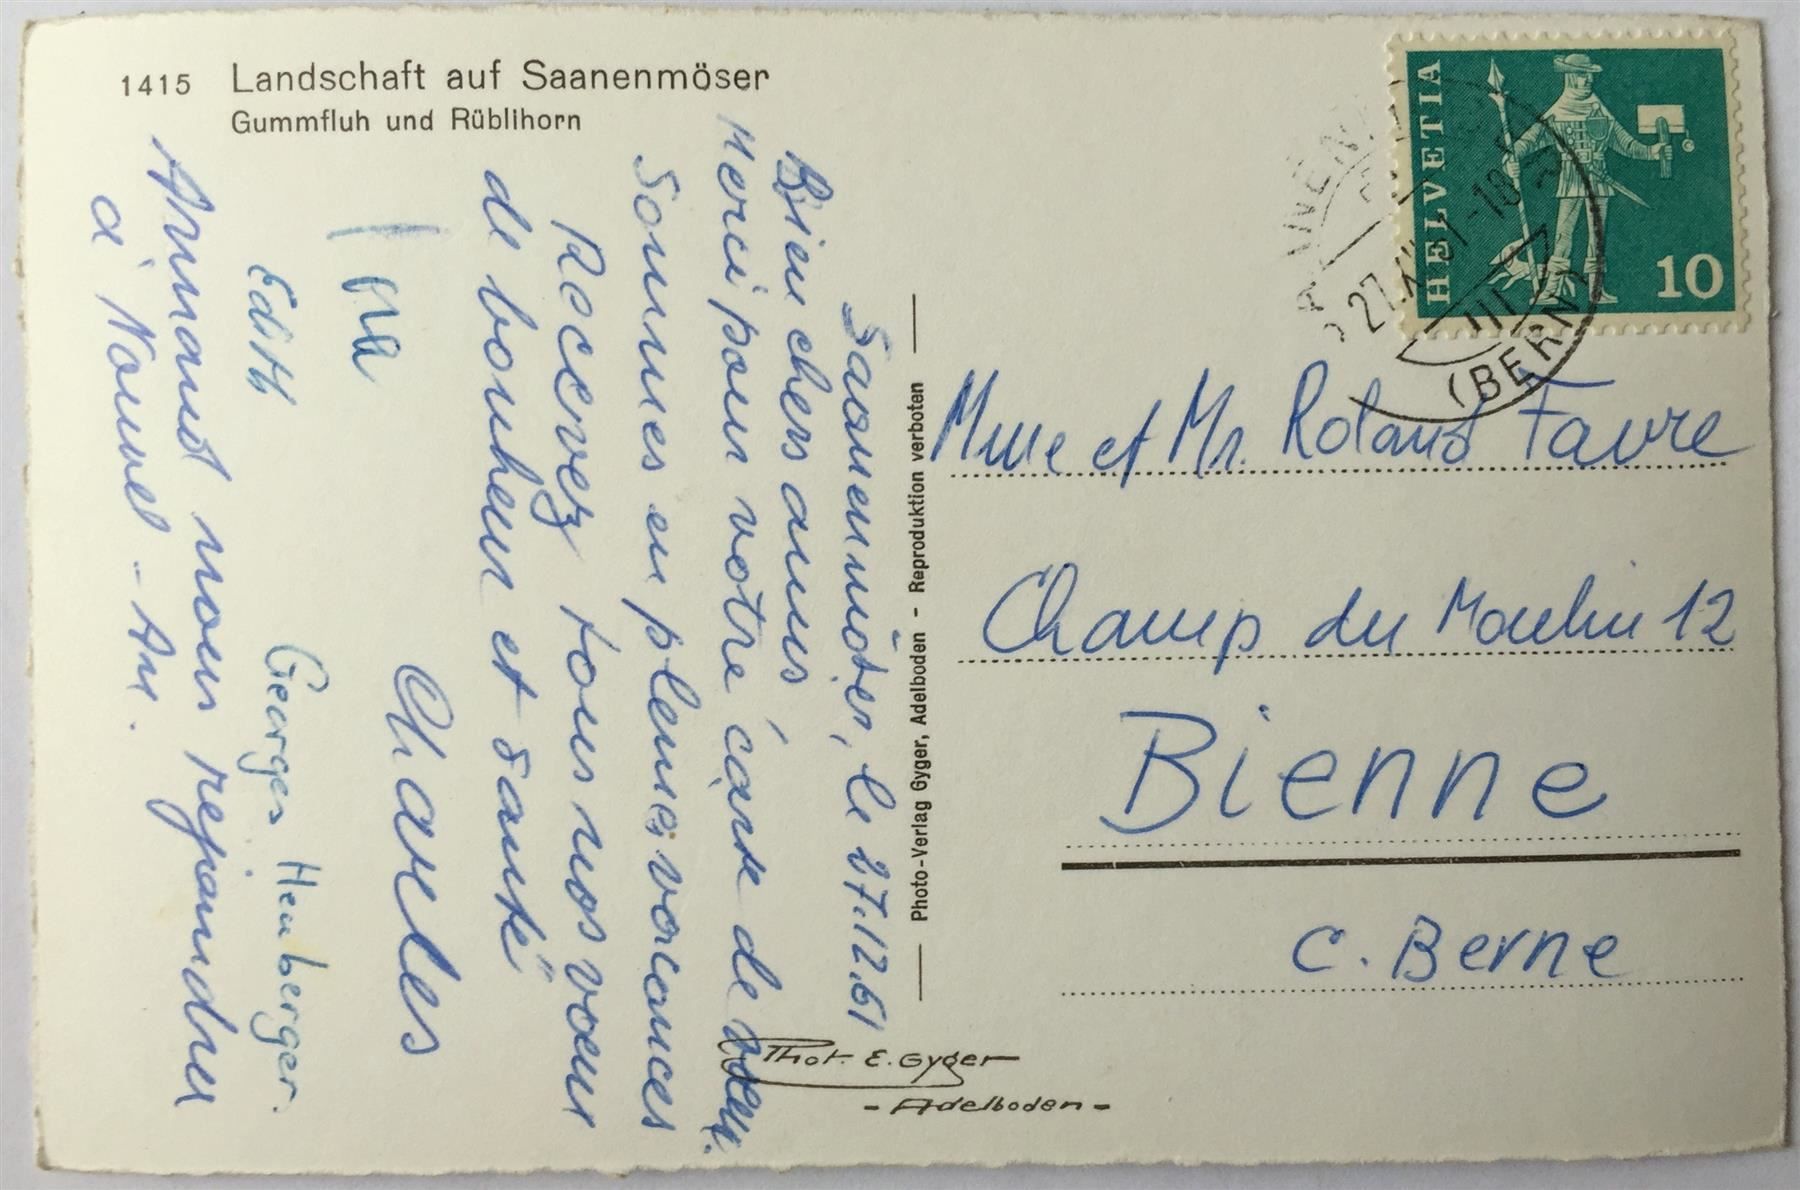 1415 Landschaft auf Saanenmöser
Gummfluh und Rüblihorn
Saanenmöser, le 27.12.61
Bien chers amis,
Merci pour votre carte de vœux.
Sommes en pleines vacances
Recevez tous nos vœux
de bonheur et santé
Charles
Eva
Edith Georges Hemberger.
Armand nous rejoindra
à Nouvel-An.
Photo-Verlag Gyger, Adelboden - Reproduktion verboten
Phot. E. Gyger
- Adelboden -
HELVETIA
10
27.XII.61-18
(BERN)
Mme et Mr. Roland Favre
Champ du Moulin 12
Bienne
c. Berne